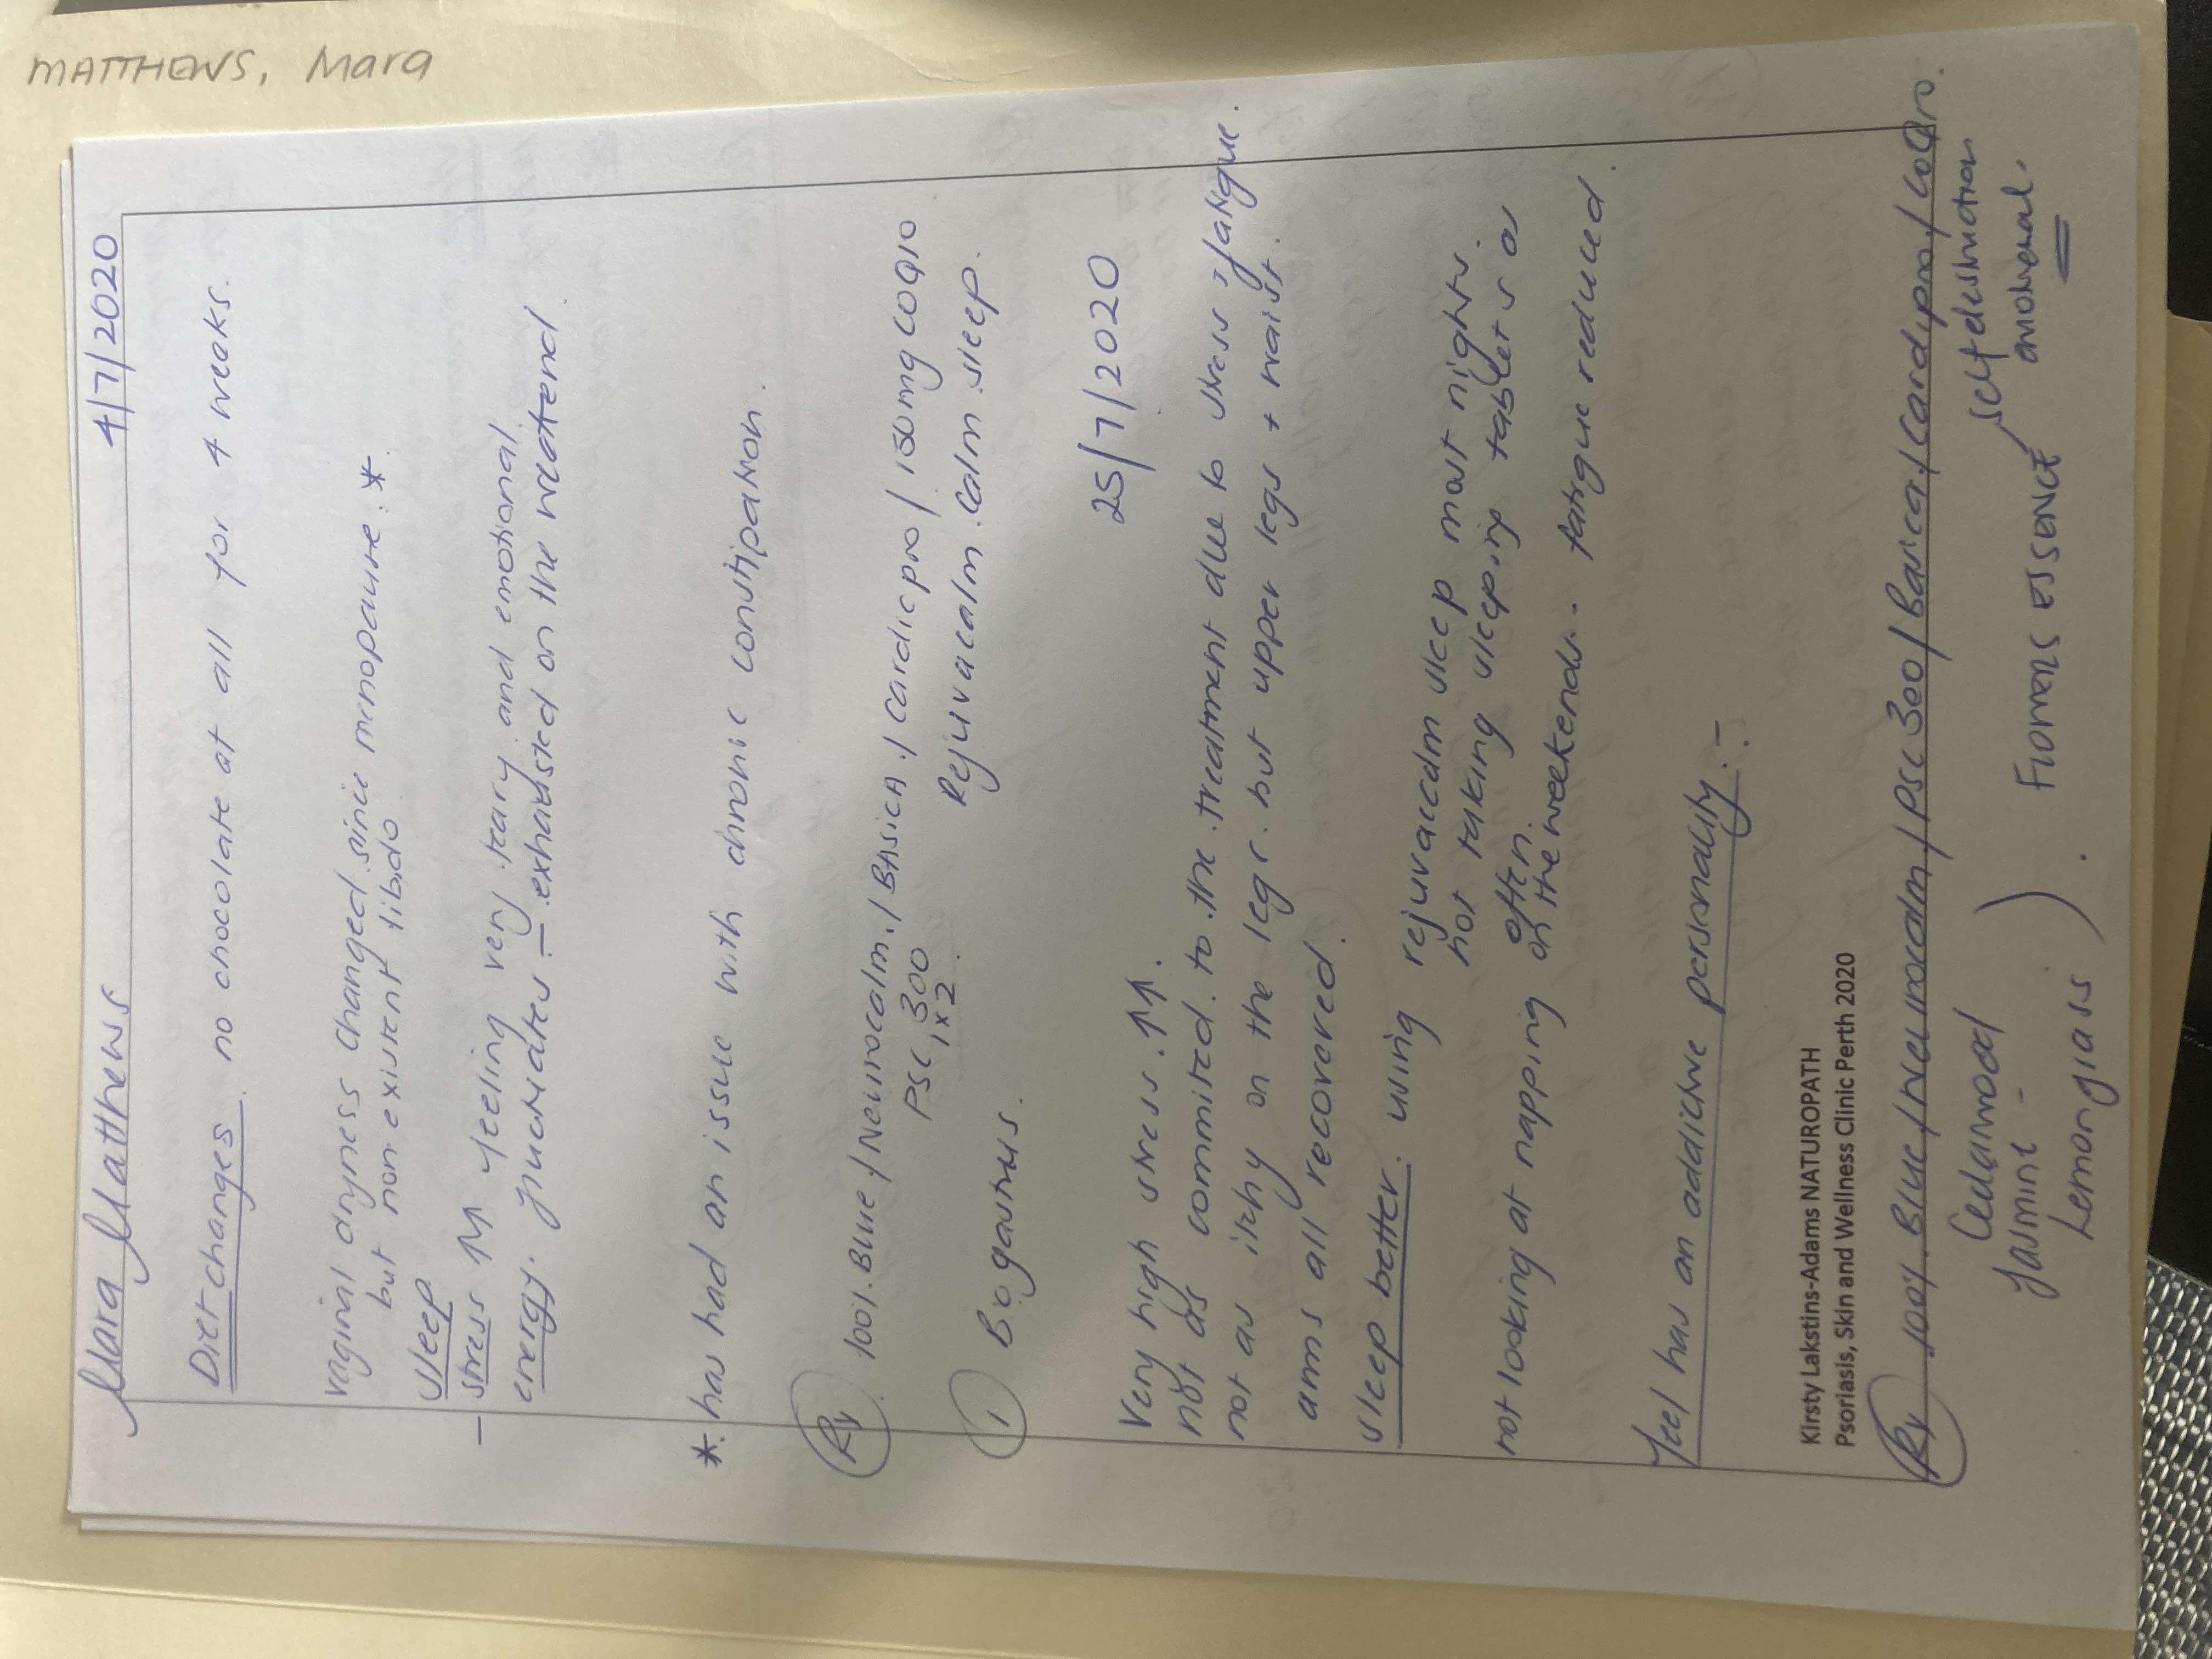 MATTHEWS, Mara
Mara Matthews 4/7/2020
Diet changes. no chocolate at all for 4 weeks.
vaginal dryness changed since menopause. *
but non existent libido
sleep
- stress ↑↑ feeling very teary and emotional.
energy. fluctuates - exhausted on the weekend.
*. has had an issue with chronic constipation.
Rx 100%. Blue / Neurocalm. / BASICA. / cardic pro / 150mg COQ10
PSC 300 Rejuvacalm. Calm sleep.
1 x 2.
1 B.o gastrus.
25/7/2020
Very high stress. ↑↑.
not as commited. to. the. treatment due to stress, fatigue.
not as itchy on the legs. but upper legs + waist.
arms all recovered.
sleep better. using rejuvacalm sleep most nights.
not taking sleeping tablets as
often.
not looking at napping on the weekends. - fatigue reduced.
feel has an addictive personality. -
Kirsty Lakstins-Adams NATUROPATH
Psoriasis, Skin and Wellness Clinic Perth 2020
Rx 100%. Blue / Neurocalm / PSC 300 / Basica. / Cardipro / COQ10.
Cedarwood ) . FLOWERS ESSENCE self destruction
Jasmine - emotional.
Lemongrass